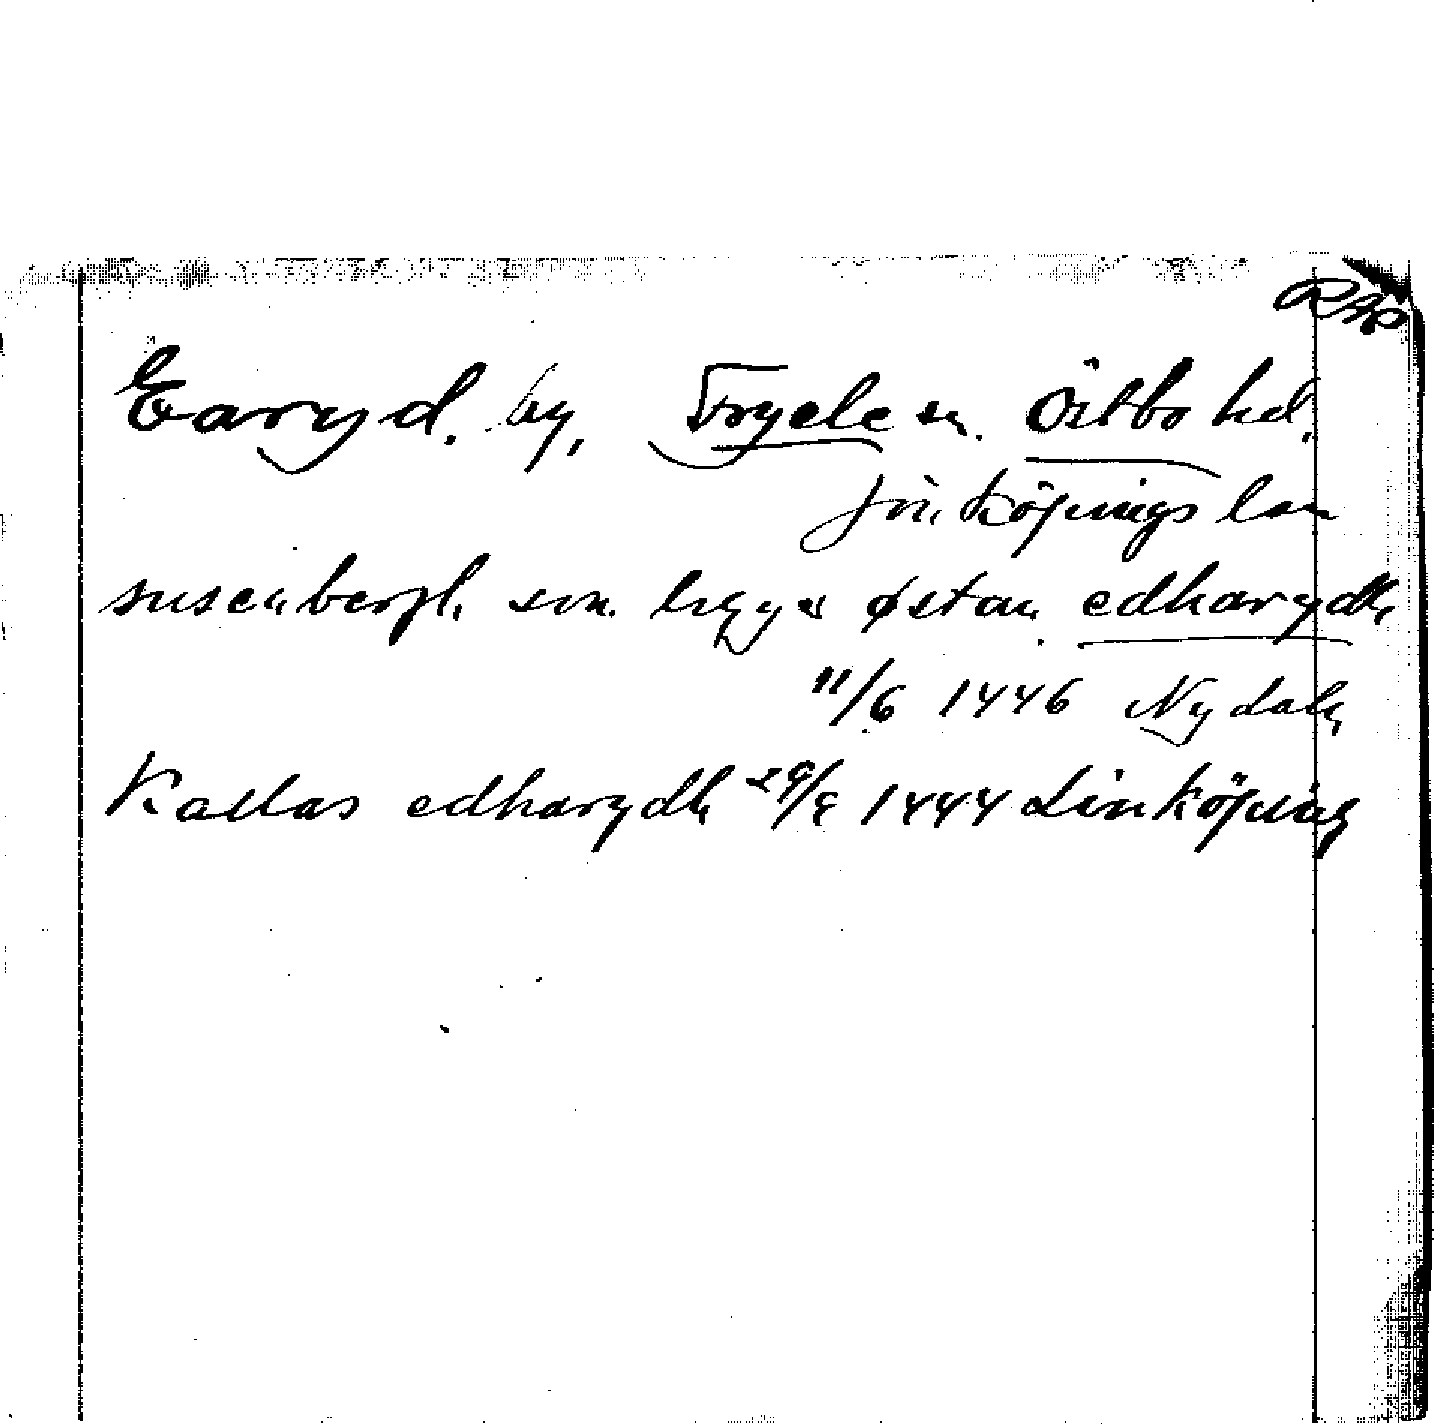 RAP
Earyd. by, Tryele sn. Östbo hd.
Jönköpings län
susenbergh som liggr østan edharydh
11/6 1446 Nydala
Kallas edharydh 29/8 1444 Linköping